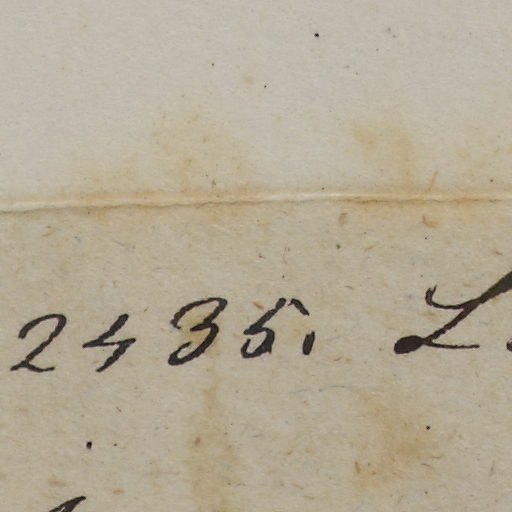 2435. L